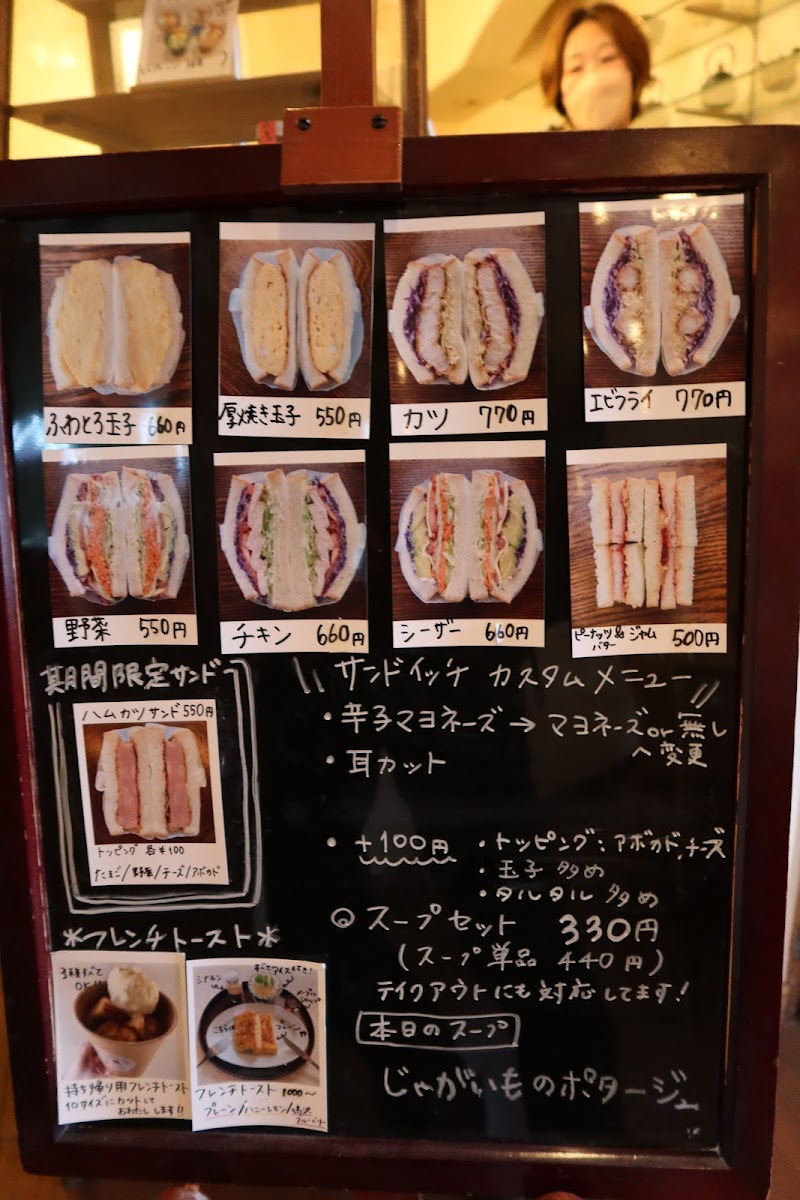 ふわとろ玉子 660円
厚焼き玉子 550円
カツ 770円
エビフライ 770円
野菜 550円
チキン 660円
シーザー 660円
ピーナッツ& ジャム 500円
バター
期間限定サンド
ハムカツサンド 550円
トッピング 各¥100
たまご/野菜/チーズ/アボカド
サンドイッチ カスタムメニュー
・辛子マヨネーズ→マヨネーズor無し
へ変更
・耳カット
・+100円 ・トッピング:アボカド、チーズ
・玉子 多め
・タルタル 多め
◎スープセット 330円
(スープ単品 440円)
テイクアウトにも対応してます!
本日のスープ
じゃがいものポタージュ
*フレンチトースト*
3種すべて
OK!!
持ち帰り用フレンチトースト
10サイズにカットして
おわたしします!!
すべてアイス付き!
シナモン
プレーン
フレンチトースト 1000〜
プレーン/ハニーレモン/